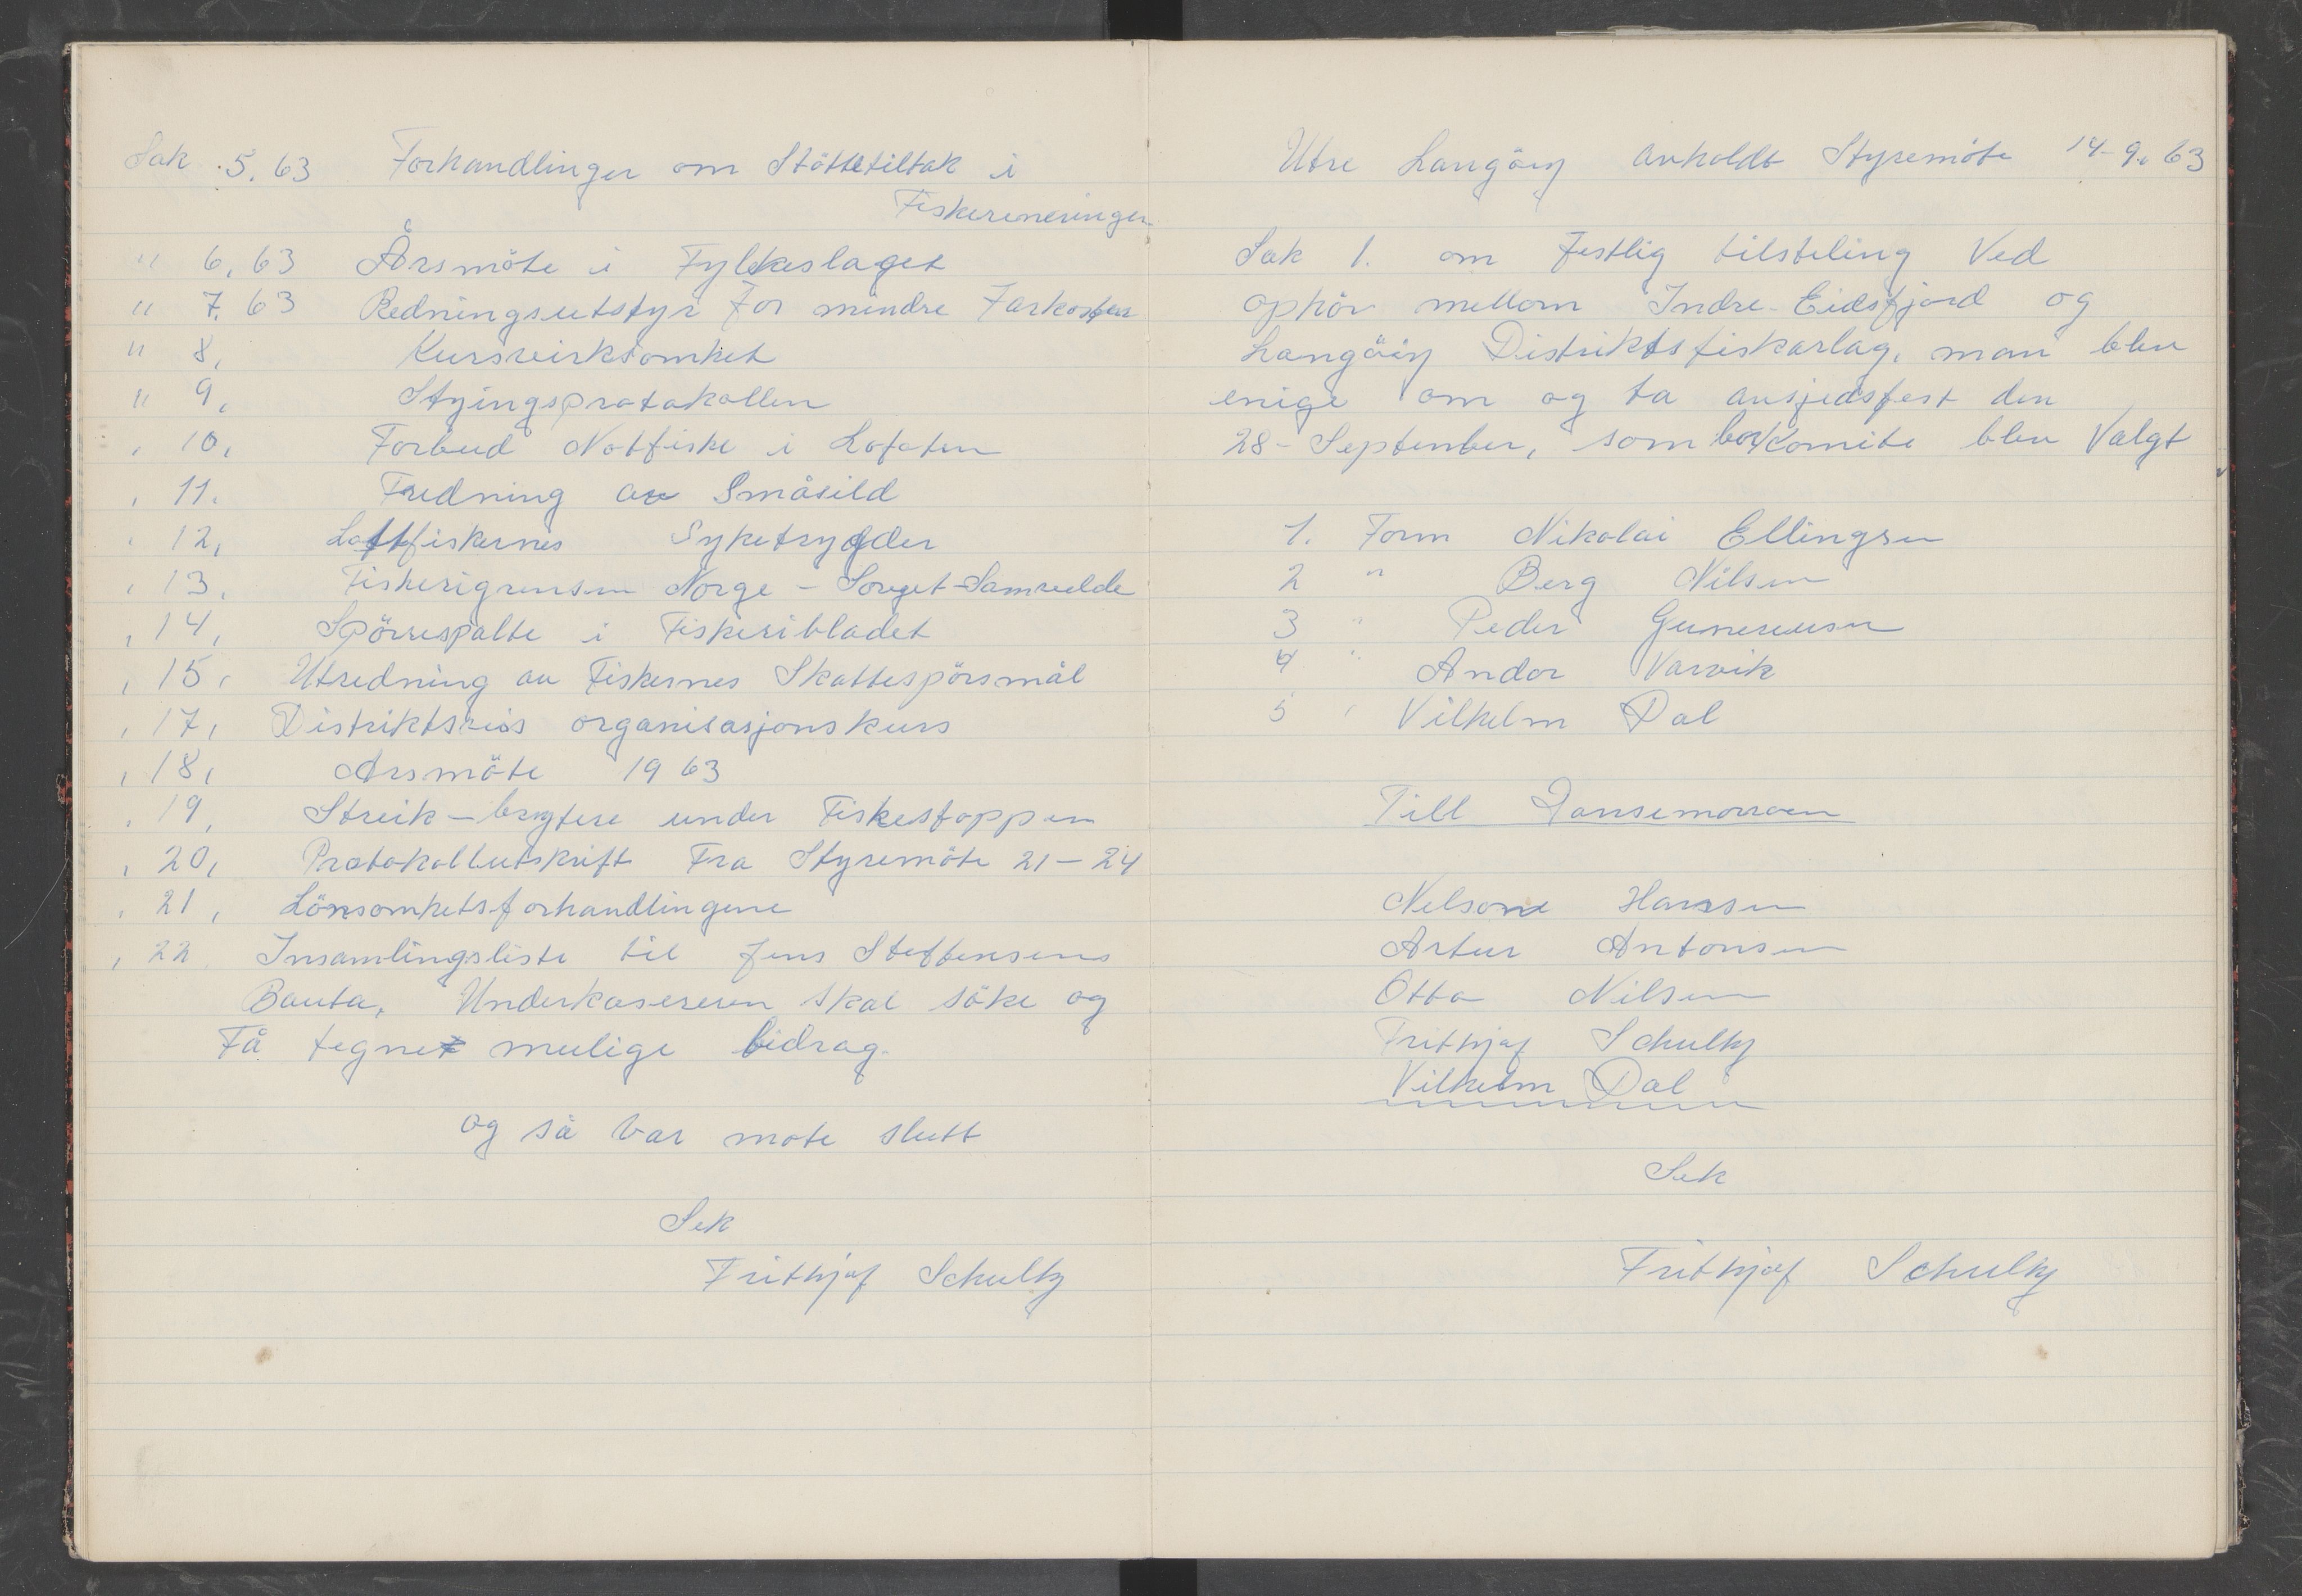 Sak 5. 63 Forhandlinger om Støttetiltak i
Fiskerineringen
" 6, 63 Årsmöte i Fylkeslaget
" 7. 63 Redningsutstyr For mindre Farkoster
" 8, Kursvirksomhet
" 9, Styingsprotokollen
, 10, Forbud Notfiske i Lofoten
, 11. Fredning av Småsild
, 12, Lottfiskernes Syketrygder
, 13, Fiskerigrensen Norge - Sovjet-Samveldde
, 14, Spörrespalte i Fiskeribladet
, 15, Utredning av Fiskernes Skattespörsmål
, 17, Distriktsvis organisasjonskurs
, 18, Arsmöte 1963
, 19, Streik-brytere under Fiskestoppen
, 20, Protokollutskrift Fra Styremöte 21-24
, 21, Lönsomhetsforhandlingene
, 22 Insamlingsliste til Jens Steffensens
Bauta, Underkasereren skal söke og
Få tegnet mulige bidrag.
og så var mote slutt
Sek
Frithjof Schultz
Utre Langöey avholdt Styremöte 14-9. 63
Sak 1. om Festlig tilsteling Ved
ophör mellom Indre-Eidsfjord og
Langöy Distriktsfiskarlag, man blev
enige om og ta avsjedsfest den
28- September, som komite blev Valgt
1. Form Nikolai Ellingsen
2 " Berg Nilsen
3 " Peder
4 " Andor Varvik
5 , Vilhelm Dal
Till Dansemorroen
Nelsone Hanssen
Artur Antonsen
Otto Nilsen
Frithjof Schultz
Vilhelm Dal
Sek
Frithjof Schultz